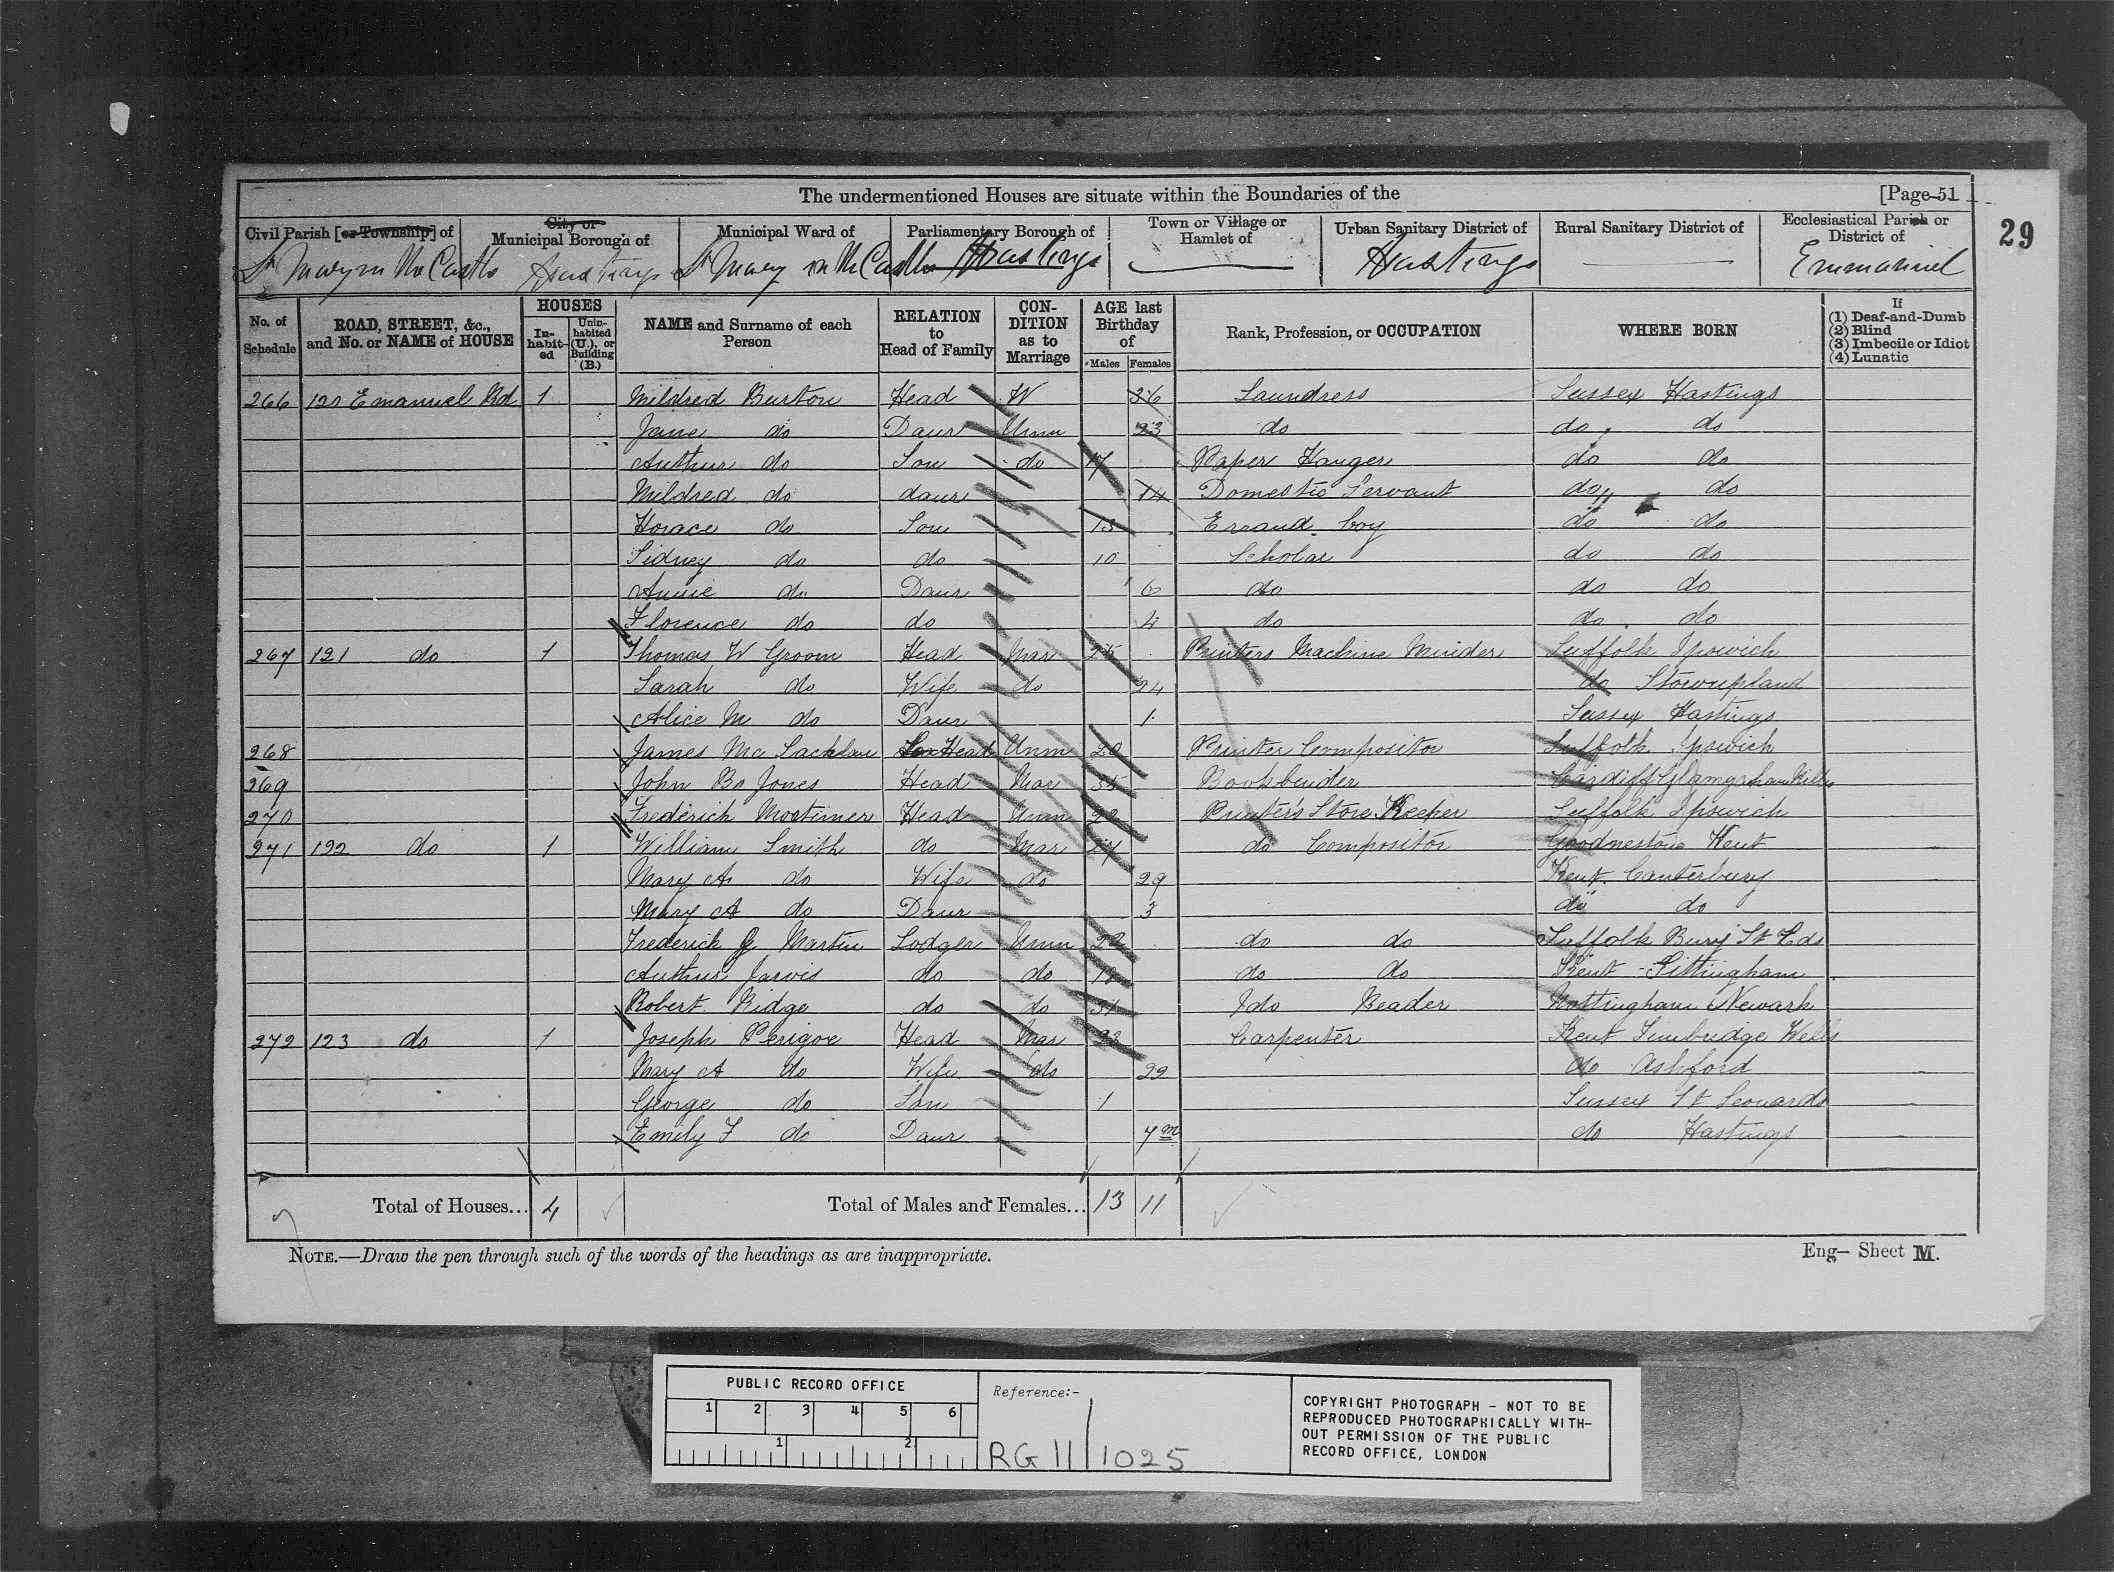 The undermentioned Houses are situate within the Boundaries of the [Page 51
29
Civil Parish [or Township] of City or Municipal Borough of Municipal Ward of Parliamentary Borough of Town or Village or Hamlet of Urban Sanitary District of Rural Sanitary District of Ecclesiastical Parish or District of
St Mary in the Castle Hastings St Mary in the Castle Hastings Hastings Emmanuel
No. of Schedule ROAD, STREET, &c., and No. or NAME of HOUSE HOUSES In-habit-ed Unin-habited (U.), or Building (B.) NAME and Surname of each Person RELATION to Head of Family CON-DITION as to Marriage AGE last Birthday of Males Females Rank, Profession, or OCCUPATION WHERE BORN If (1) Deaf-and-Dumb (2) Blind (3) Imbecile or Idiot (4) Lunatic
266 Emanuel Rd 1 Mildred Burton Head W Laundress Sussex Hastings
Jane do Daur Unm 23 do do do
Arthur do Son do 17 Paper Hanger do do
Mildred do daur 14 Domestic Servant do do
Horace do Son 13 Errand boy do do
Sidney do do 10 Scholar do do
Annie do Daur 6 do do do
Florence do do 4 do do do
267 121 do 1 Thomas W Groom Head Mar 25 Printers Machine Minder Suffolk Ipswich
Sarah do Wife do 24 do Stowupland
Alice M do Daur 1 Sussex Hastings
268 James Mc Lachlan Head Unm Printer Compositor Suffolk Ipswich
269 John Jones Head Mar 35 Bookbinder Cardiff
270 Frederick Mortimer Head Unm Printer's Store Keeper Suffolk Ipswich
271 122 do 1 William Smith do Mar do Compositor Goodnestone Kent
Mary A do Wife do 29 Kent Canterbury
Mary A do Daur 3 do do
Frederick Martin Lodger Unm do do Suffolk Bury St Eds
Arthur Jarvis do do do do Kent
Robert Ridge do do do Reader Nottingham Newark
272 123 do 1 Joseph Perigoe Head Mar Carpenter Kent Tunbridge Wells
Mary A do Wife do 29 do Ashford
George do Son 1 Sussex St Leonards
Emily F do Daur 7m do Hastings
Total of Houses... 4 Total of Males and Females... 13 11
NOTE.—Draw the pen through such of the words of the headings as are inappropriate. Eng— Sheet M.
PUBLIC RECORD OFFICE
1 2 3 4 5 6
1 2
Reference:-
RG 11 / 1025
COPYRIGHT PHOTOGRAPH - NOT TO BE
REPRODUCED PHOTOGRAPHICALLY WITH-
OUT PERMISSION OF THE PUBLIC
RECORD OFFICE, LONDON